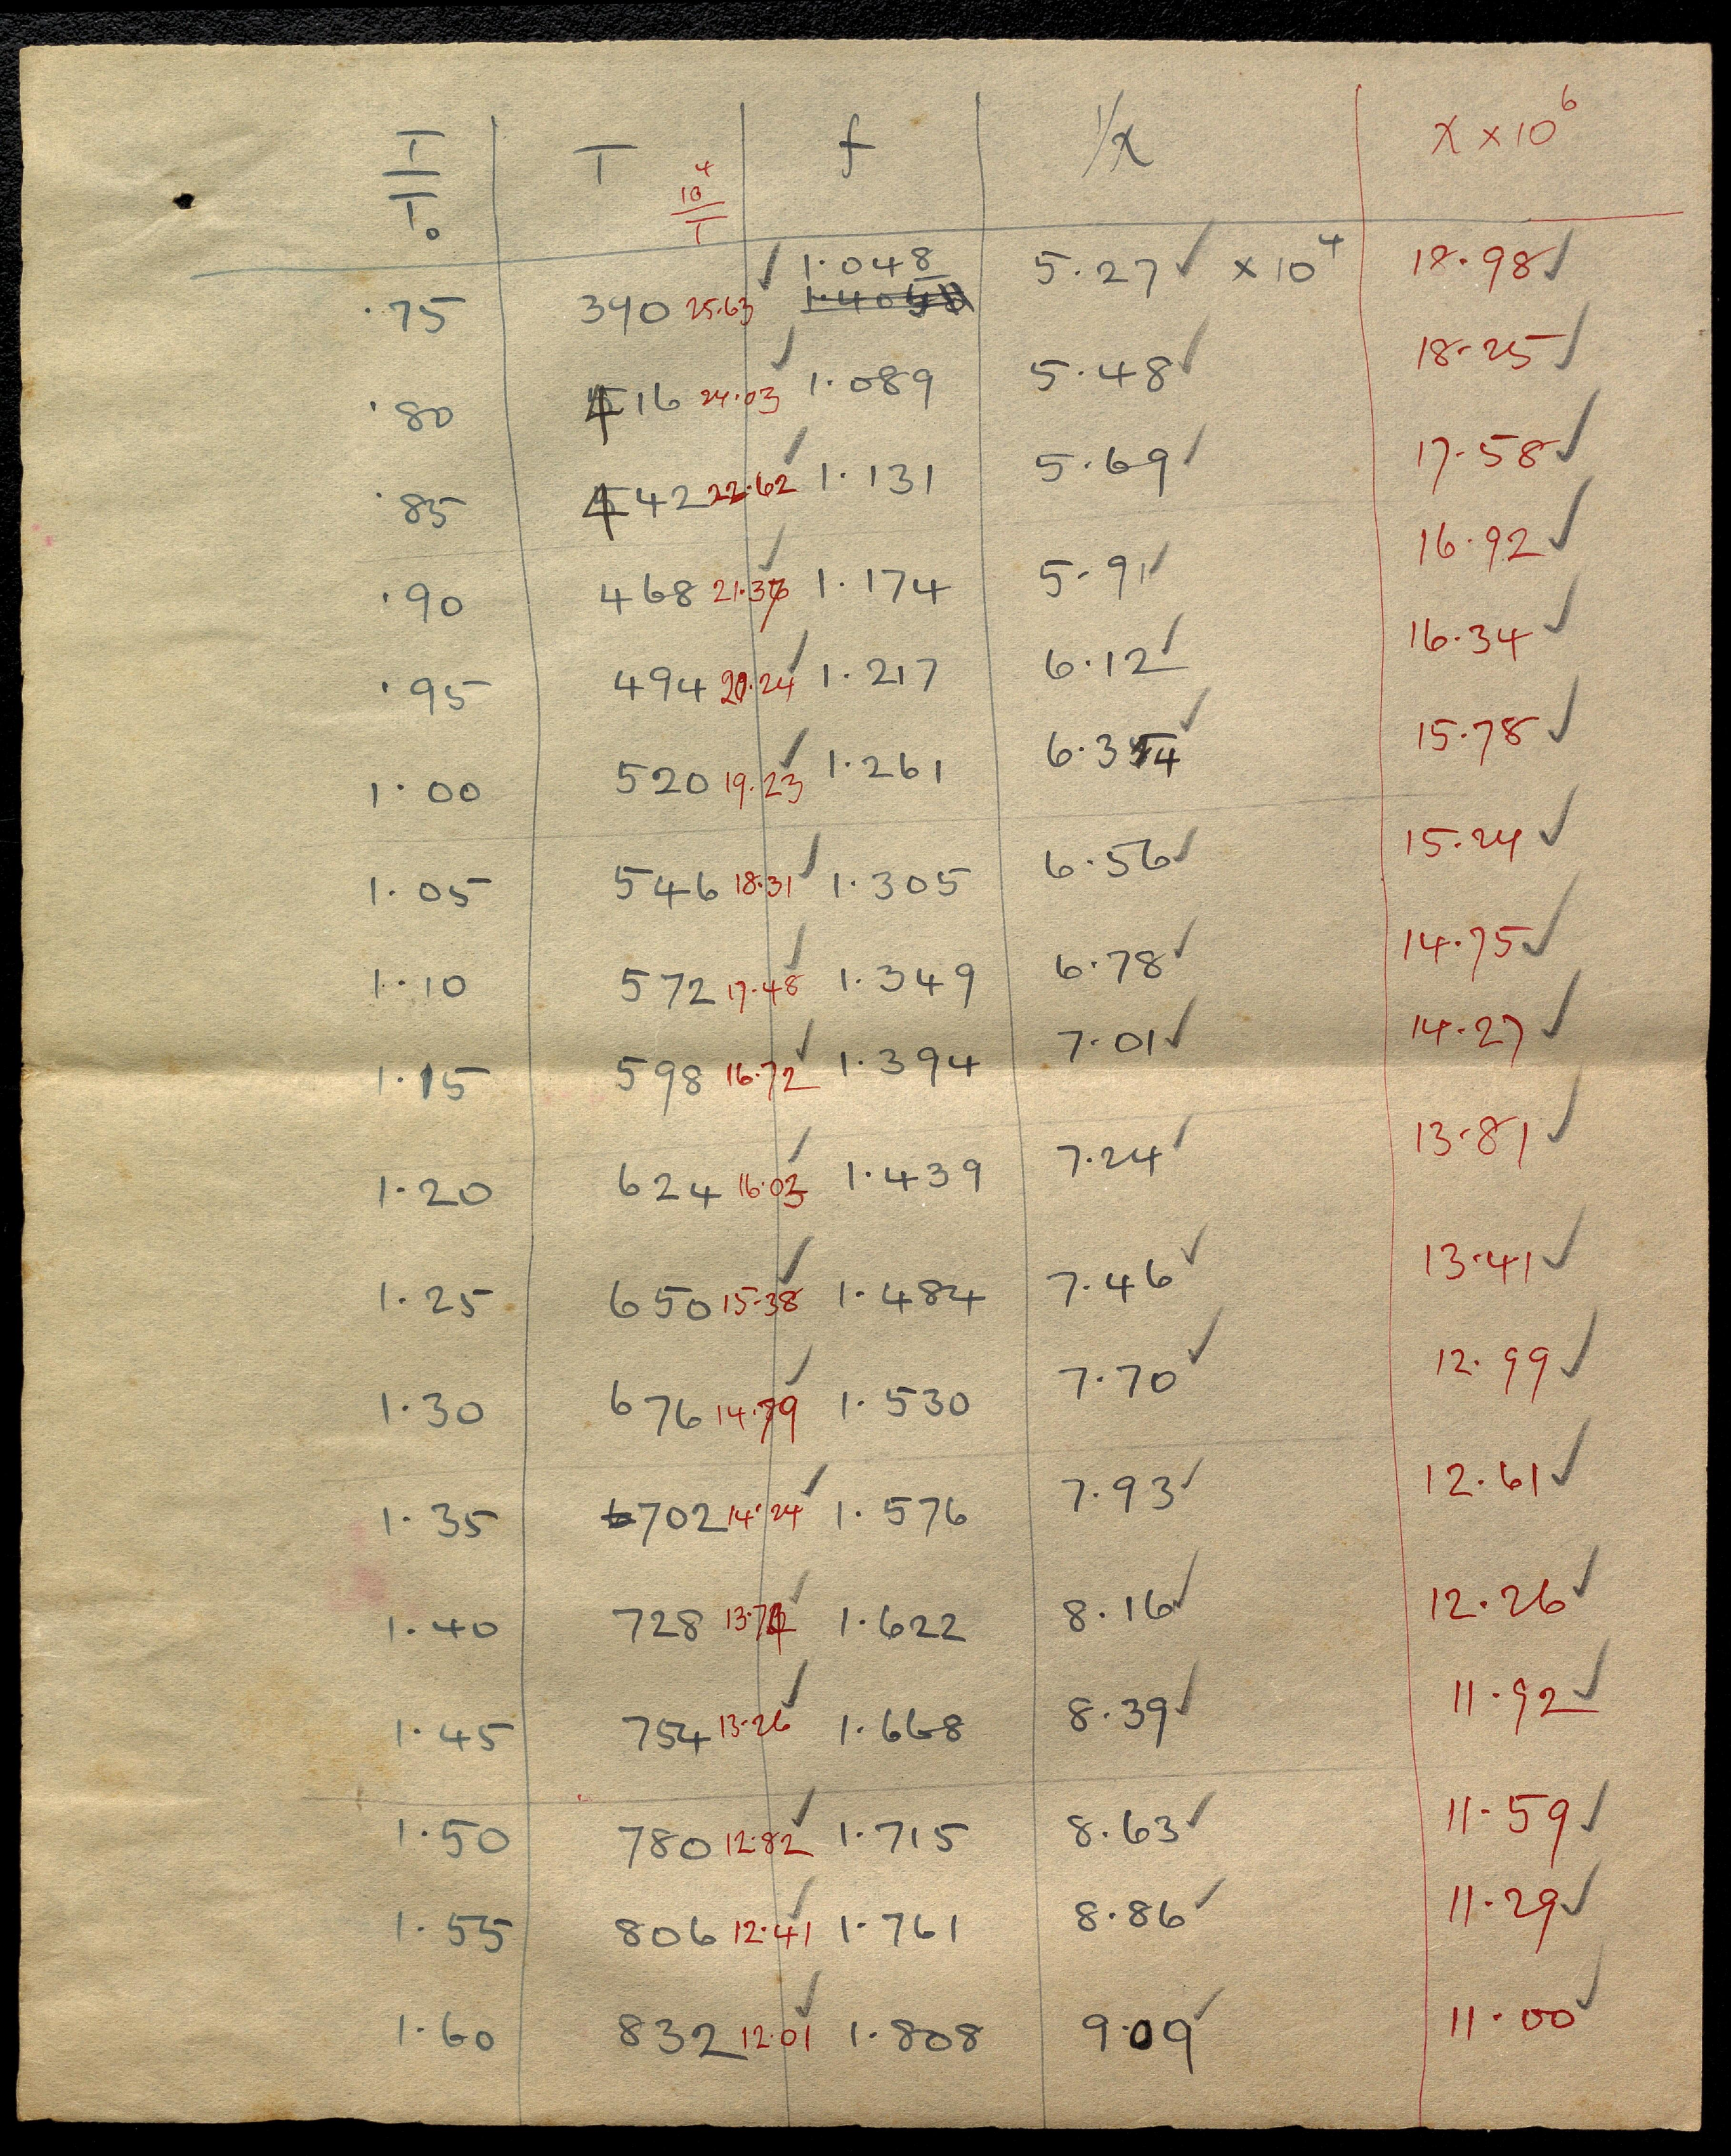 T/T₀ T 10⁴/T f 1/χ χ × 10⁶
·75 390 25·63 1·048 5·27 × 10⁴ 18·98
·80 416 24·03 1·089 5·48 18·25
·85 442 22·62 1·131 5·69 17·58
·90 468 21·37 1·174 5·91 16·92
·95 494 20·24 1·217 6·12 16·34
1·00 520 19·23 1·261 6·34 15·78
1·05 546 18·31 1·305 6·56 15·24
1·10 572 17·48 1·349 6·78 14·75
1·15 598 16·72 1·394 7·01 14·27
1·20 624 16·03 1·439 7·24 13·81
1·25 650 15·38 1·484 7·46 13·41
1·30 676 14·79 1·530 7·70 12·99
1·35 702 14·24 1·576 7·93 12·61
1·40 728 13·74 1·622 8·16 12·26
1·45 754 13·26 1·668 8·39 11·92
1·50 780 12·82 1·715 8·63 11·59
1·55 806 12·41 1·761 8·86 11·29
1·60 832 12·01 1·808 9·09 11·00